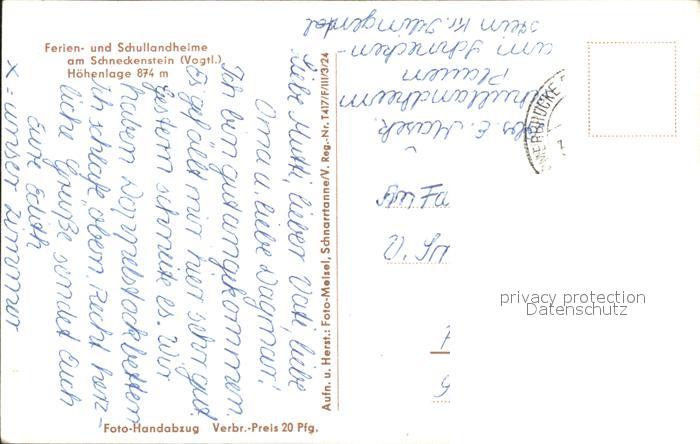 Ferien- und Schullandheime
am Schneckenstein (Vogtl.)
Höhenlage 874 m
Liebe Mutti, lieber Vati, liebe
Oma u. liebe Dagmar!
Ich bin gut angekommen.
Es gefällt mir hier sehr gut.
Gestern schneite es. Wir
haben Doppelstockbetten
Ich schlafe oben. Recht herz-
liche Grüße sendet Euch
Eure Edith
x = unser Zimmer
Foto-Handabzug Verbr.-Preis 20 Pfg.
Aufn. u. Herst.: Foto-Meisel, Schnarrtanne/V. Reg.-Nr. T417/F/III/3/24
Schullandheim
Plauen
am Schnecken-
stein Kr. Klingental
Fa
privacy protection
Datenschutz